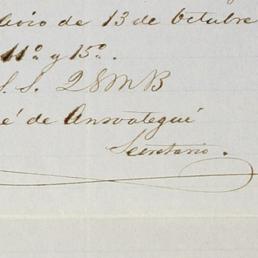 de 13 de Octubre
11º y 15º.
S. S. 2 S M B
é de Ansoategui
Secretario.